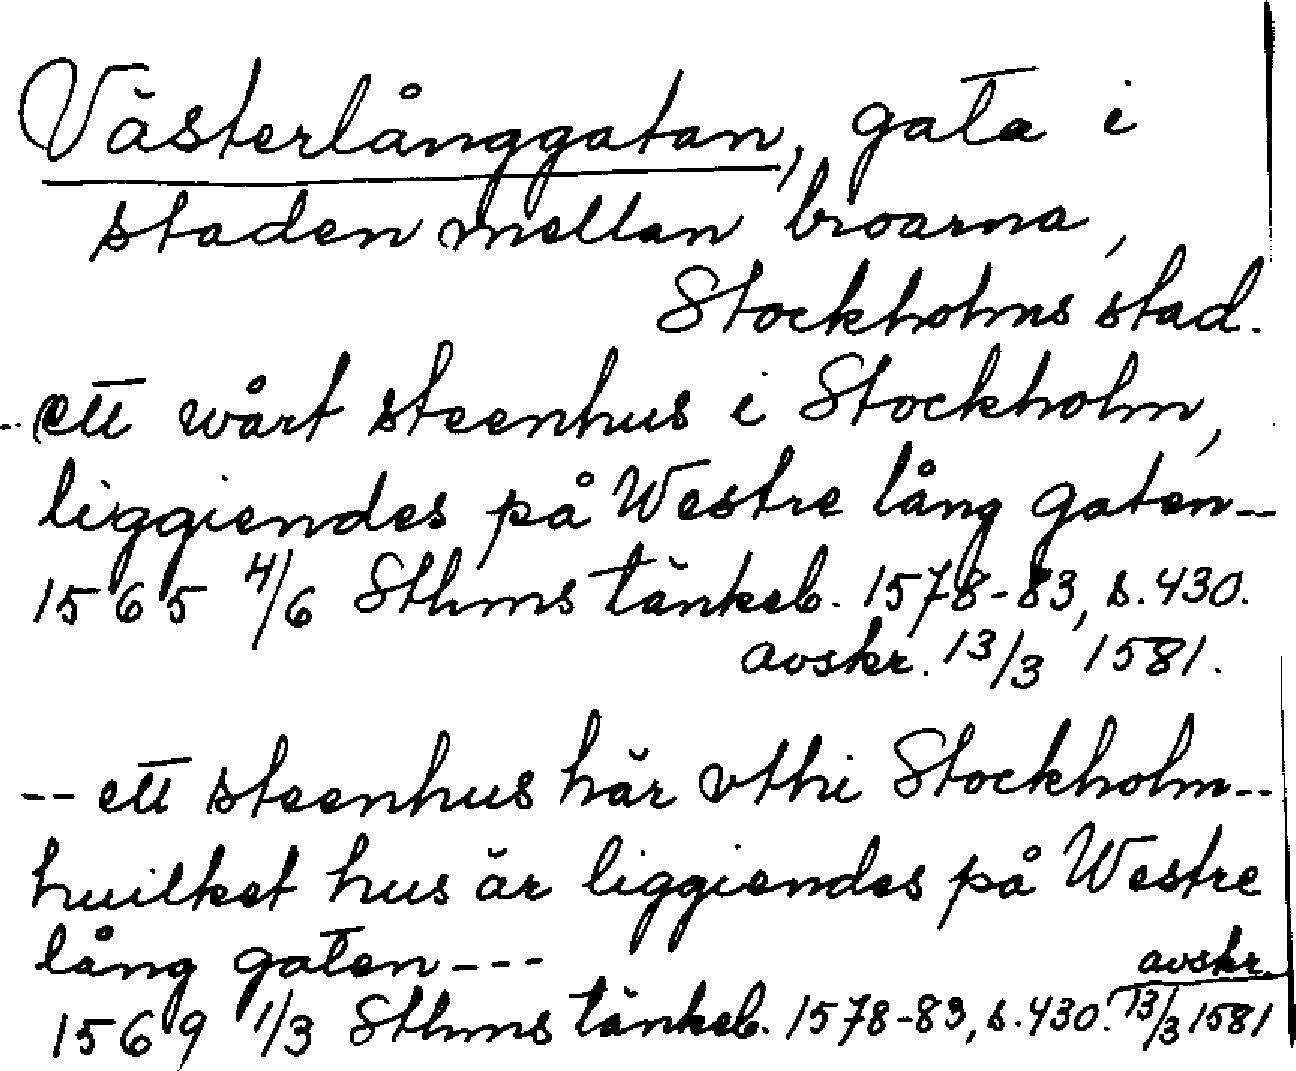 Västerlånggatan, gata i
staden mellan broarna,
Stockholms stad.
-- ett wårt steenhus i Stockholm,
liggiendes på Westre lång gaten--
1565 4/6 Sthms tänkeb. 1578-83, s.430.
avskr. 13/3 1581.
-- ett steenhus här vthi Stockholm--
huilket hus är liggiendes på Westre
lång gaten---
1569 1/3 Sthms tänkeb. 1578-83, s.430. avskr. 13/3 1581